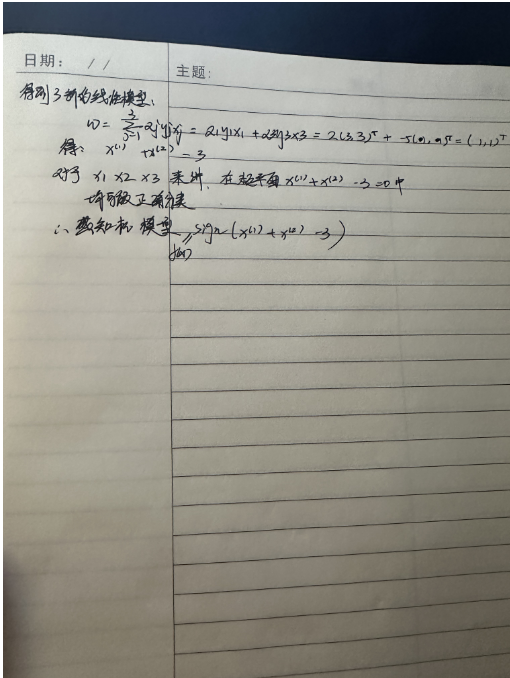 日期： / /
主题：
得到了新的线性模型、
w = 3∑j=1 αjyjxj = α1y1x1 + α3y3x3 = 2(3.3)ᵀ + -5(1,1)ᵀ = (1,1)ᵀ
得： x⁽¹⁾ + x⁽²⁾ = 3
对于 x1 x2 x3 来讲, 在超平面 x⁽¹⁾ + x⁽²⁾ - 3 = 0 中
均可被正确分类
∴ 感知机 模型 sign(x⁽¹⁾ + x⁽²⁾ - 3)
f(x) =